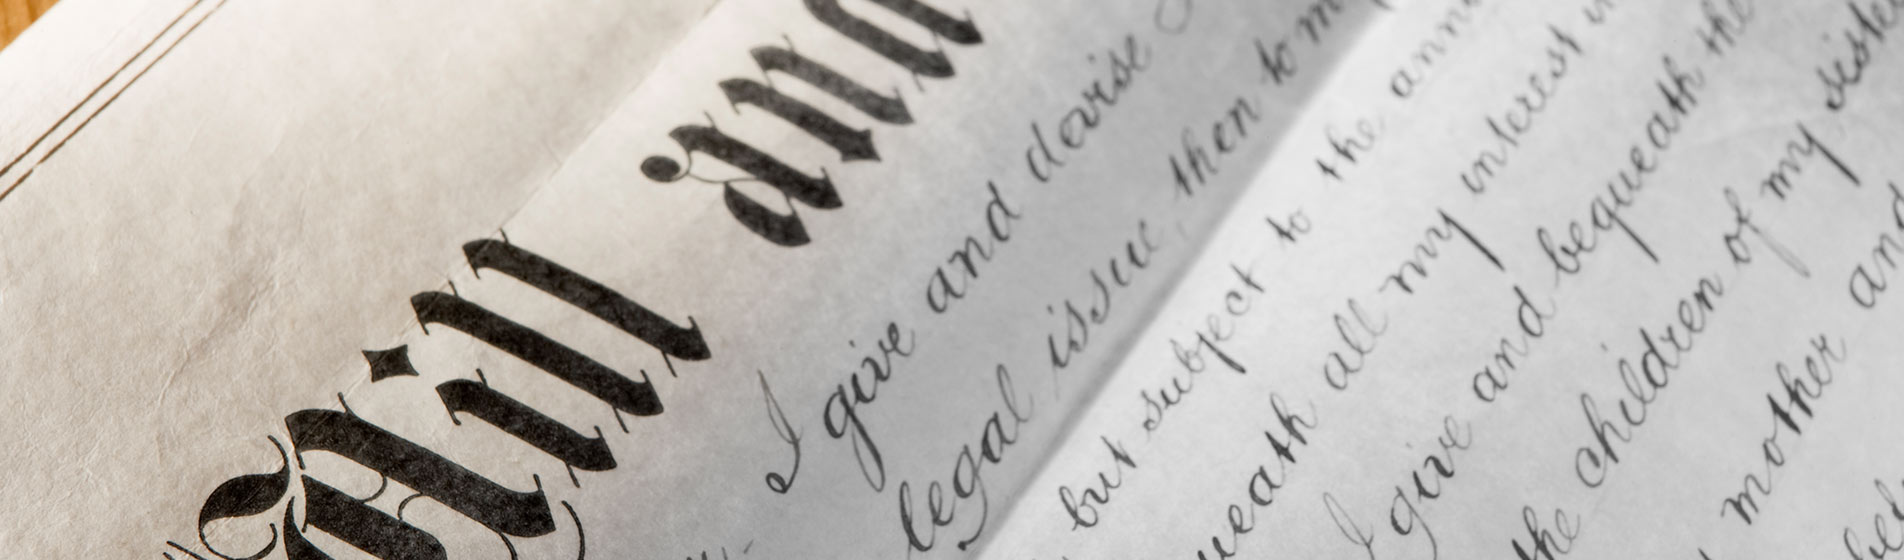 Will and
I give and devise
legal issue, then to
but subject to the
ueath all my interest
I give and bequeath the
the children of my siste
mother and